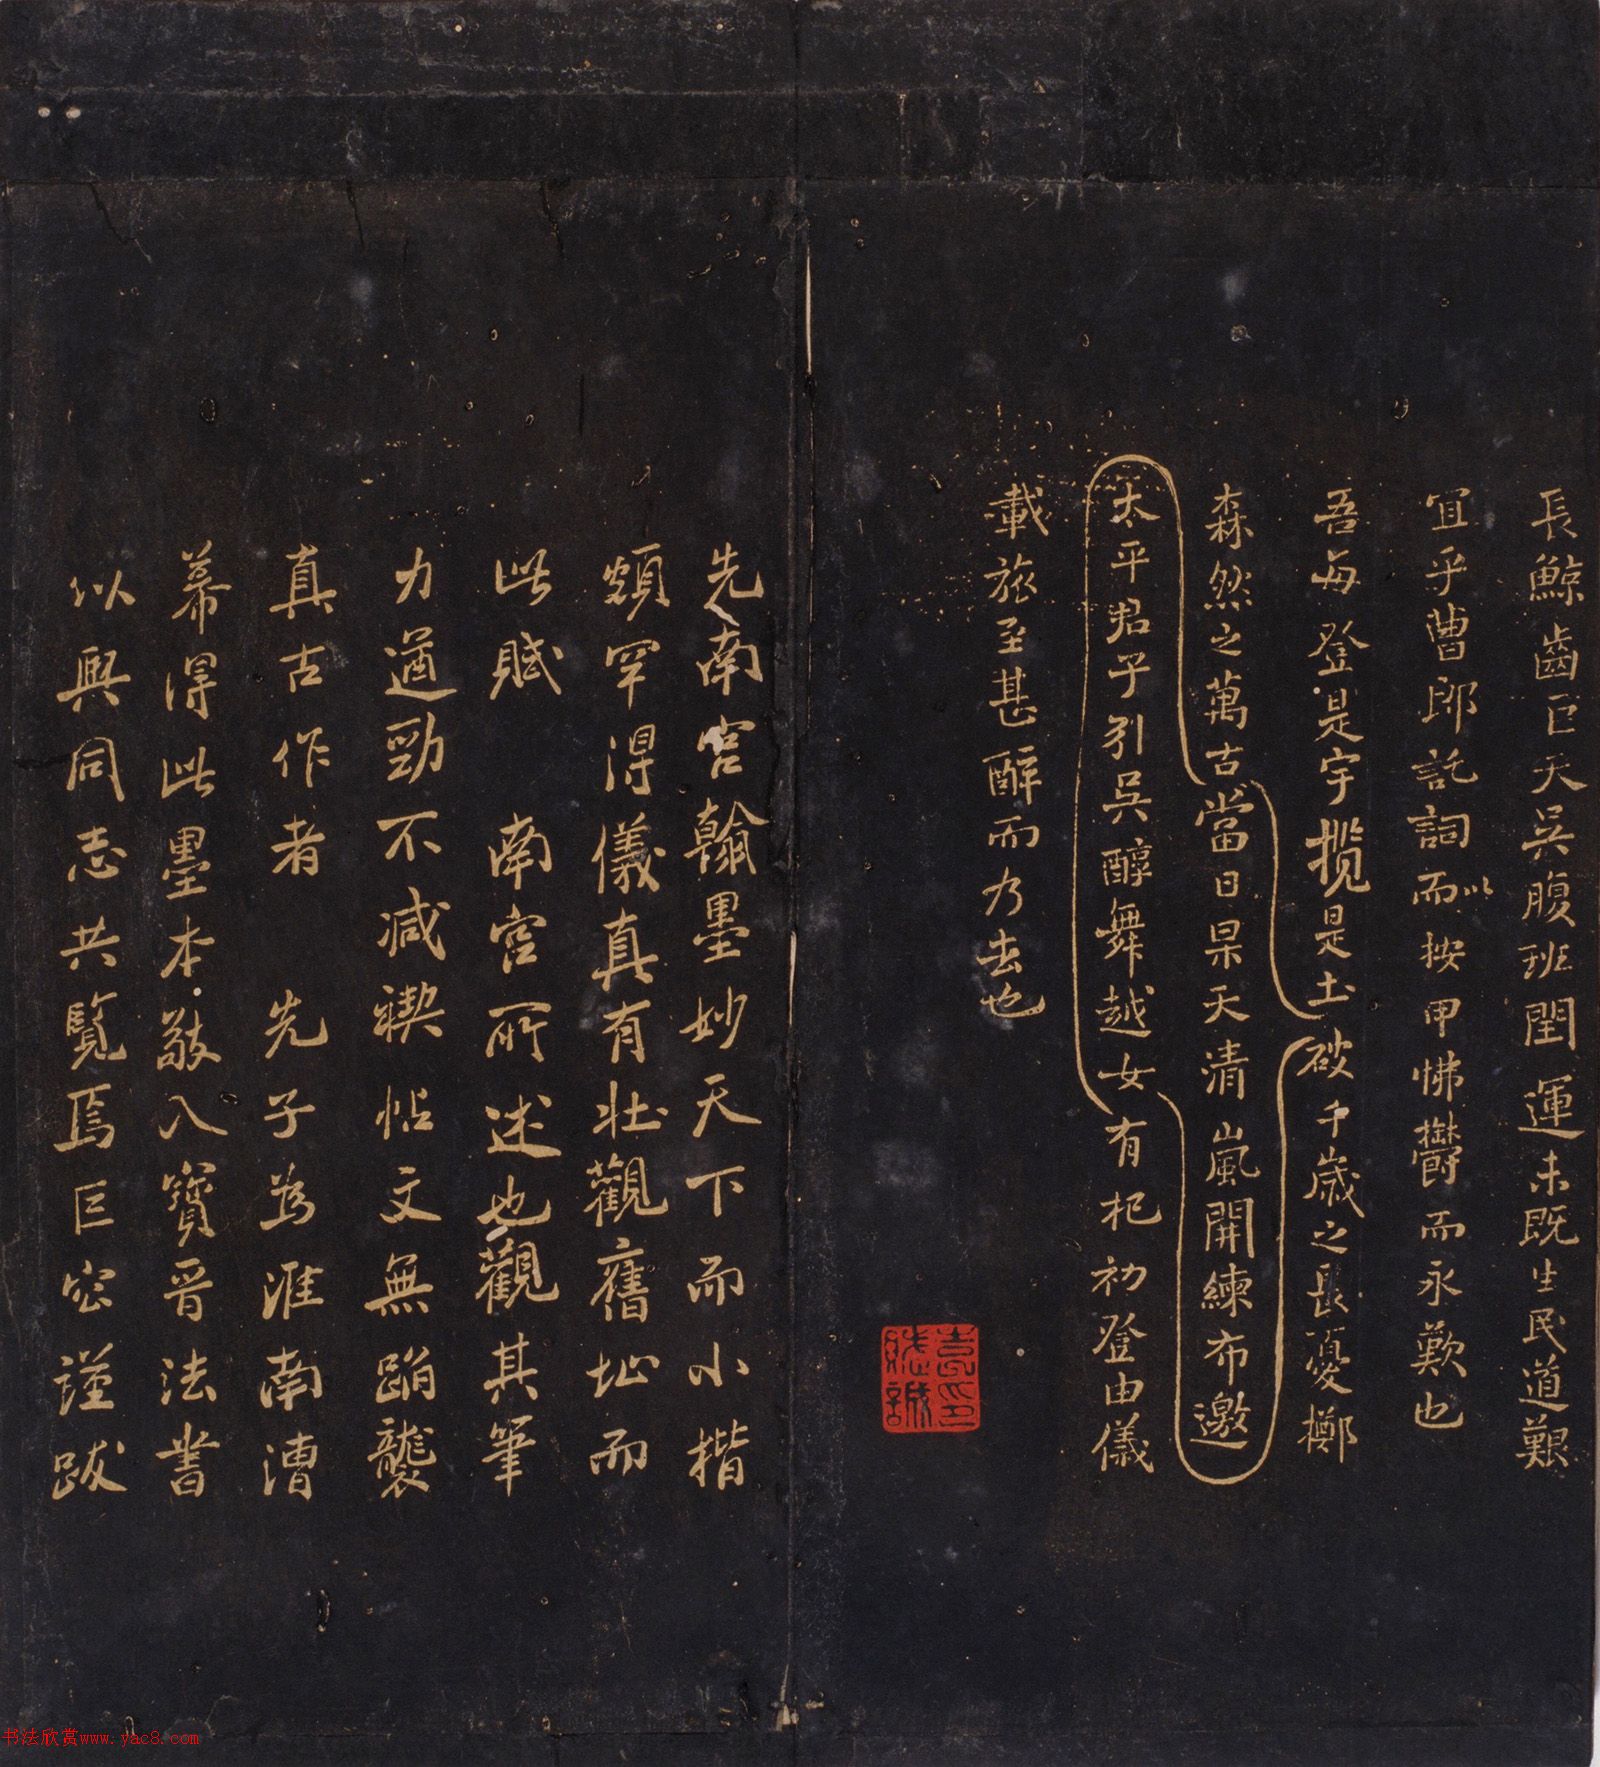 長鯨齒巨天吳腹班閏運未既生民道艱
宜乎曹郎託詞而以按甲怫鬱而永歎也
吾每登是宇攬是土破千歲之長憂擲
森然之萬古當日杲天清嵐開練布邀
太平君子引吳醇舞越女有杞初登由儀
載旅至甚醉而乃去也
先南宮翰墨妙天下而小楷
頗罕得儀真有壯觀舊址而
此賦 南宮所述也觀其筆
力遒勁不減禊帖文無蹈襲
真古作者 先子為淮南漕
幕得此墨本敬入寶晉法書
似與同志共覽焉巨容謹跋
书法欣赏www.yac8.com